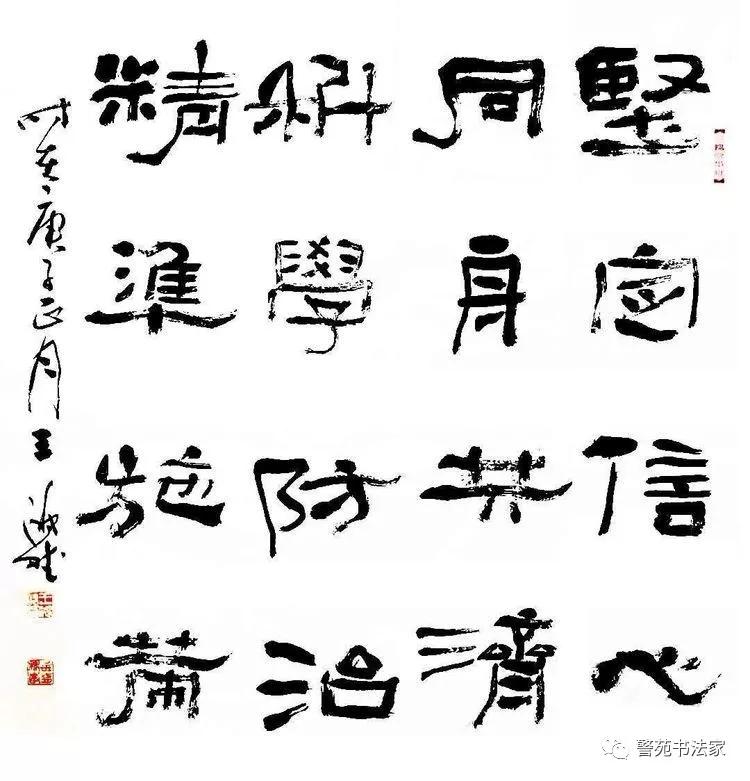 堅定信心
同舟共濟
科學防治
精準施策
时在庚子正月王
警苑书法家